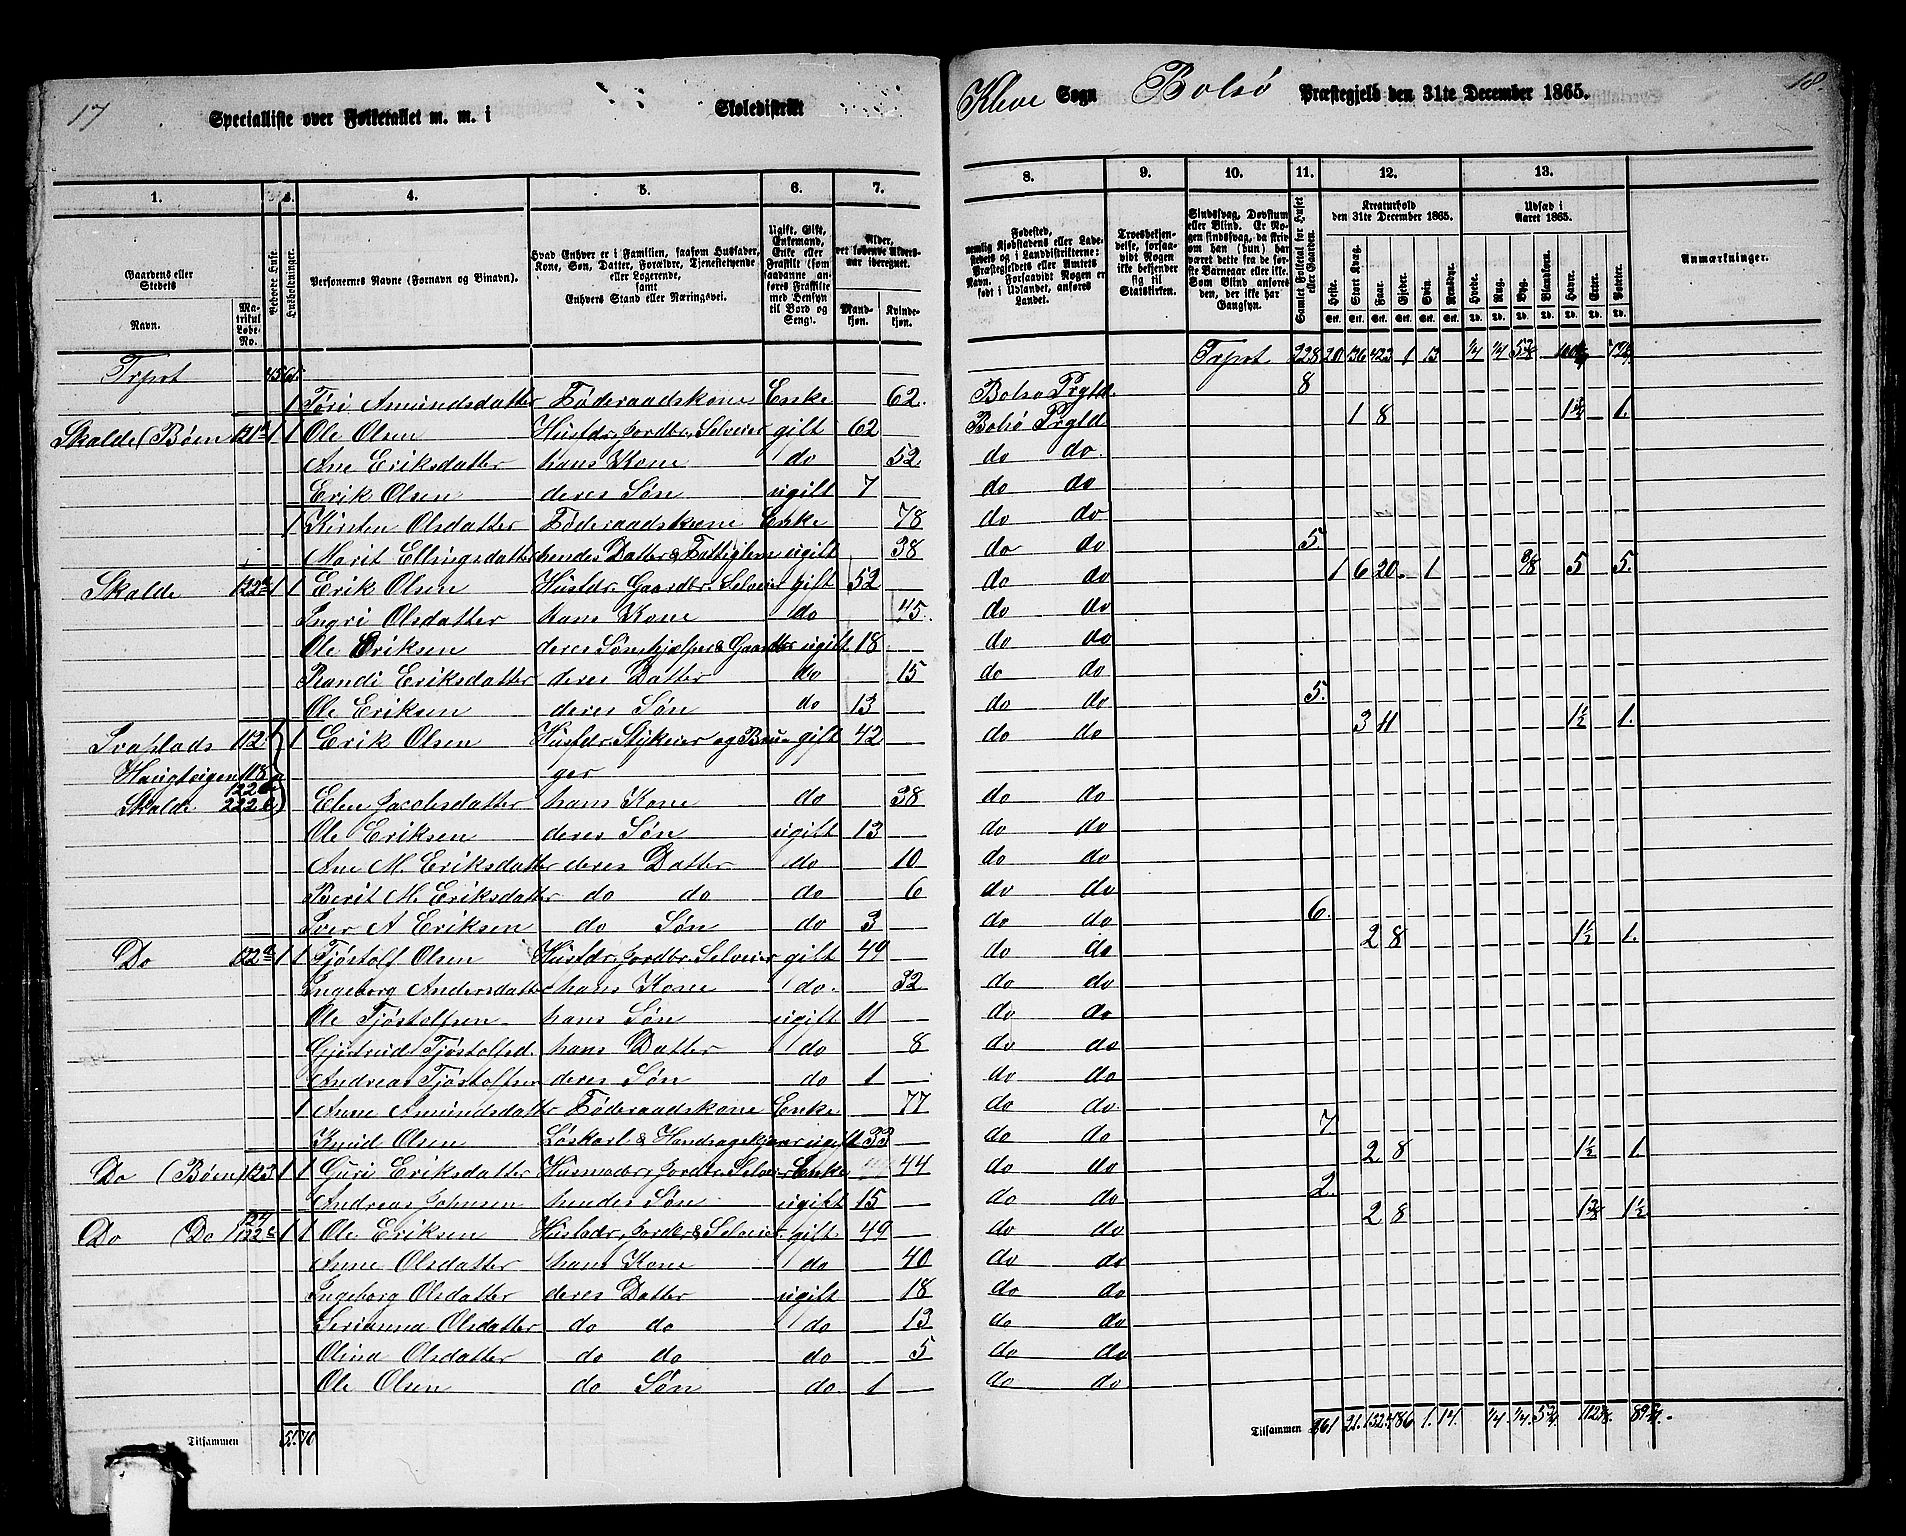 17
Specialliste over Folketallet m. m. i Skoledistrikt
Kleve Sogn Bolsø Præstegjeld den 31te December 1865.
18.
1. 3. 4. 5. 6. 7.
Gaardens eller Stedets Navn. Matrikul Løbe-No. Beboede Huse. Husholdninger.
Personernes Navne (Fornavn og Binavn).
Hvad Enhver er i Familien, saasom Husfader, Kone, Søn, Datter, Forældre, Tjenestetyende eller Logerende, samt Enhvers Stand eller Næringsvei.
Ugift, Gift, Enkemand, Enke eller Fraskilt (som saadanne anføres Fraskilte med Hensyn til Bord og Seng).
Alder, det løbende Alders-aar iberegnet. Mandkjøn. Kvindekjøn.
8. 9. 10. 11. 12. 13.
Fødested, nemlig Kjøbstadens eller Ladestedets og i Landdistrikterne: Præstegjeldets eller Amtets Navn. Forsaavidt Nogen er født i Udlandet, anføres Landet.
Troesbekjendelse, forsaavidt Nogen ikke bekjender sig til Statskirken.
Sindssvag, Døvstum eller Blind. Er Nogen sindssvag, da skriv om han (hun) har været det fra de første Barneaar eller ikke. Som Blind anføres den, der ikke har Gangsyn.
Samlet Folketal for Huset eller Gaarden.
Kreaturhold den 31te December 1865.
Heste. Stort Kvæg. Faar. Gjeder. Svin. Rensdyr.
Udsæd i Aaret 1865.
Hvede. Rug. Byg. Blandkorn. Havre. Erter. Poteter.
Anmærkninger.
Trpst 45 65. Trpst 228 20
1 Tøri Amundsdatter Føderaadskone Enke 62. Bolsø Prgld. 8
Skalde (Bøen 121 1 1 Ole Olsen Husfdr, Jordbr, Selveier gift 62 Bolsø Prgld 1 8 1.
Ane Eriksdatter hans Kone do 52. do do
Erik Olsen deres Søn ugift 7 do do
1 Kirsten Olsdatter Føderaadskone Enke 78 do do
Marit Ellingsdatter hendes Datter & Fattiglem ugift 38 do do 5.
Skalde 122 1 1 Erik Olsen Husfdr. Gaardbr. Selveier gift 52 do do 1 6 20 1 5 5.
Ingri Olsdatter hans Kone do 45. do do
Ole Eriksen deres Søn hjælper & Gaardbr ugift 18 do do
Randi Eriksdatter deres Datter do 15 do do
Ole Eriksen deres Søn do 13 do do 5.
112 1 Erik Olsen gift 42 do do 3 11 1½ 1.
Haugteigen 118 ger
Skalde 222 Elen Jacobsdatter hans Kone do 38 do do
Ole Eriksen deres Søn ugift 13 do do
Ane M. Eriksdatter deres Datter do 10 do do
Berit M. Eriksdatter do do do 6 do do
Iver A Eriksen do Søn do 3 do do 6.
Do 122 1 1 Tjøstolf Olsen Husfdr, Jordbr. Selveier gift 49 do do 2 8 1½ 1.
Ingeborg Andersdatter hans Kone do. 32 do do
Ole Tjøstolfsen hans Søn ugift 11 do do
Gjertrud Tjøstolfsd. hans Datter do 8 do do
Andreas Tjøstolfsen deres Søn do 1 do do
1 Anne Amundsdatter Føderaadskone Enke 77 do do.
Knud Olsen Løskarl & ugift 33 do do 7
Do (Bøen 123 1 1 Guri Eriksdatter Husmoder, Jordbr. Selveier Enke 44 do do 2 8 1½ 1.
Andreas Johnsen hendes Søn ugift 15 do do 2.
Do (Do 124 122 1 1 Ole Eriksen Husfadr, Jordbr & Selveier gift 49 do do 2 8 1½
Anne Olsdatter hans Kone do 40 do do
Ingeborg Olsdatter deres Datter ugift 18 do do
Serianna Olsdatter do do do 13 do do
Olina Olsdatter do do do 5 do do
Ole Olsen do Søn do 1 do do
Tilsammen 51 70 Tilsammen 261 21. 132 486 1. 14. ¼ ¼